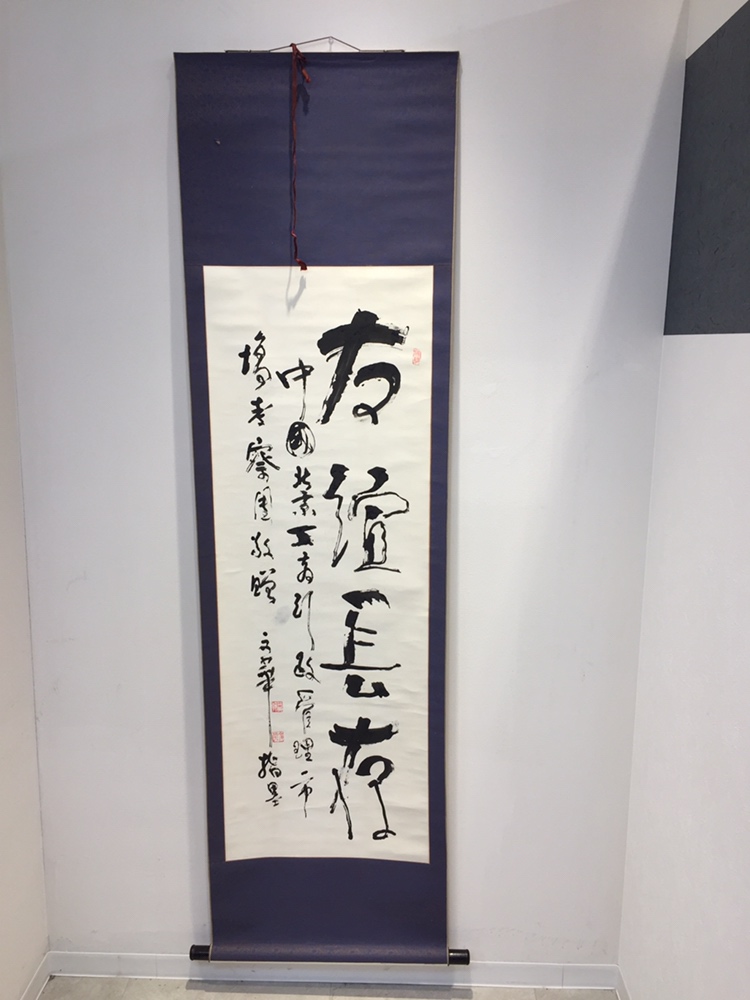 友誼長存
中國北京工商行政管理市
場考察團敬贈 文華 指墨